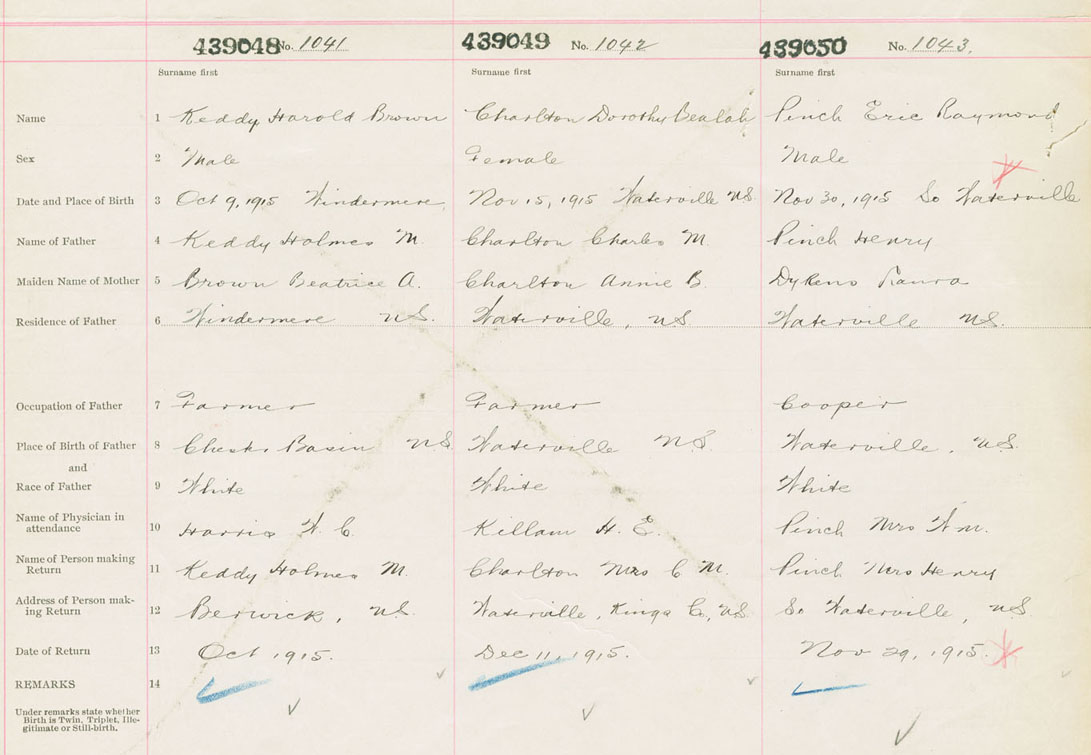 439048 No. 1041 439049 No. 1042 439050 No. 1043.
Surname first Surname first Surname first
Name 1 Keddy Harold Brown Charlton Dorothy Bealah Pinch Eric Raymond
Sex 2 Male Female Male
Date and Place of Birth 3 Oct 9, 1915 Windermere, Nov 15, 1915 Waterville NS Nov 30, 1915 So Waterville
Name of Father 4 Keddy Holmes M Charlton Charles M. Pinch Henry
Maiden Name of Mother 5 Brown Beatrice A. Charlton Annie B. Dykens Laura
Residence of Father 6 Windermere NS. Waterville, NS. Waterville NS.
Occupation of Father 7 Farmer Farmer Cooper
Place of Birth of Father 8 Basin NS Waterville NS. Waterville, NS.
and
Race of Father 9 White White White
Name of Physician in
attendance 10 Harris W. C. Killam H. E. Pinch Mrs Wm.
Name of Person making
Return 11 Keddy Holmes M. Charlton Mrs C M. Pinch Mrs Henry
Address of Person mak-
ing Return 12 Berwick, NS. Waterville, Kings Co, NS. So Waterville, NS
Date of Return 13 Oct 1915. Dec 11, 1915. Nov 29, 1915.
REMARKS 14
Under remarks state whether
Birth is Twin, Triplet, Ille-
gitimate or Still-birth.